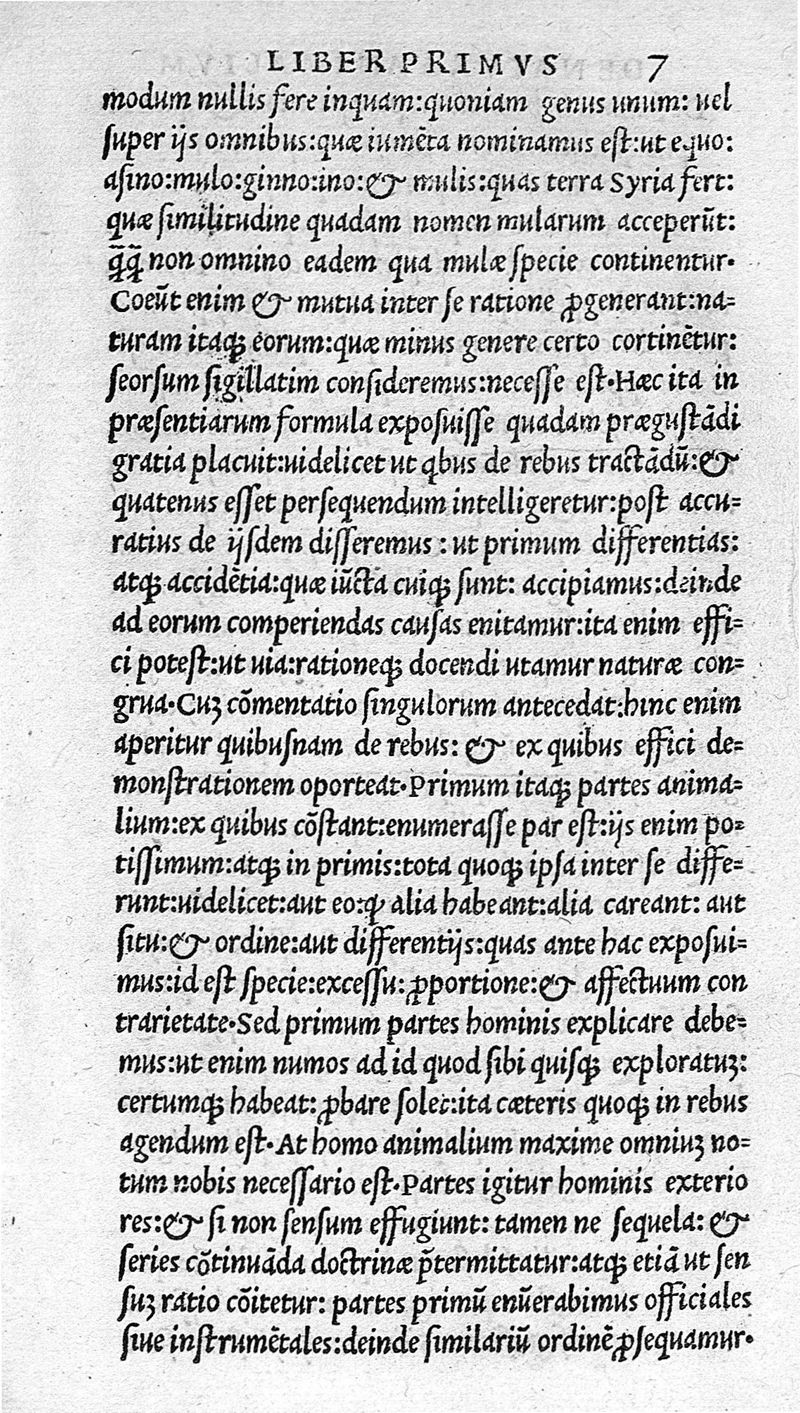 LIBER PRIMVS 7
modum nullis fere inquam:quoniam genus unum: uel
super ijs omnibus:quæ iumēta nominamus est:ut equo:
asino:mulo:ginno:ino:& mulis:quas terra Syria fert:
quæ similitudine quadam nomen mularum acceperūt:
q̄q̄ non omnino eadem qua mulæ specie continentur.
Coeūt enim & mutua inter se ratione ꝓgenerant:na=
turam itaqꝫ eorum:quæ minus genere certo cortinētur:
seorsum sigillatim consideremus:necesse est.Hæc ita in
præsentiarum formula exposuisse quadam prægustādi
gratia placuit:uidelicet ut qbus de rebus tractādū:&
quatenus esset persequendum intelligeretur:post accu=
ratius de ijsdem disseremus : ut primum differentias:
atqꝫ accidētia:quæ iūcta cuiqꝫ sunt: accipiamus:deinde
ad eorum comperiendas causas enitamur:ita enim effi=
ci potest:ut uia:rationeqꝫ docendi utamur naturæ con=
grua.Cuꝫ cōmentatio singulorum antecedat:hinc enim
aperitur quibusnam de rebus: & ex quibus effici de=
monstrationem oporteat.Primum itaqꝫ partes anima=
lium:ex quibus cōstant:enumerasse par est:ijs enim po=
tissimum:atqꝫ in primis:tota quoqꝫ ipsa inter se diffe=
runt:uidelicet:aut eo:ꝙ alia habeant:alia careant: aut
situ:& ordine:aut differentijs:quas ante hac exposui=
mus:id est specie:excessu: ꝓportione:& affectuum con
trarietate.Sed primum partes hominis explicare debe=
mus:ut enim numos ad id quod sibi quisqꝫ exploratuꝫ:
certumqꝫ habeat: ꝓbare solet:ita cæteris quoqꝫ in rebus
agendum est.At homo animalium maxime omniuꝫ no=
tum nobis necessario est.Partes igitur hominis exterio
res:& si non sensum effugiunt: tamen ne sequela: &
series cōtinuāda doctrinæ p̄termittatur:atqꝫ etiā ut sen
suꝫ ratio cōitetur: partes primū enūerabimus officiales
siue instrumētales:deinde similariū ordinē ꝓsequamur.